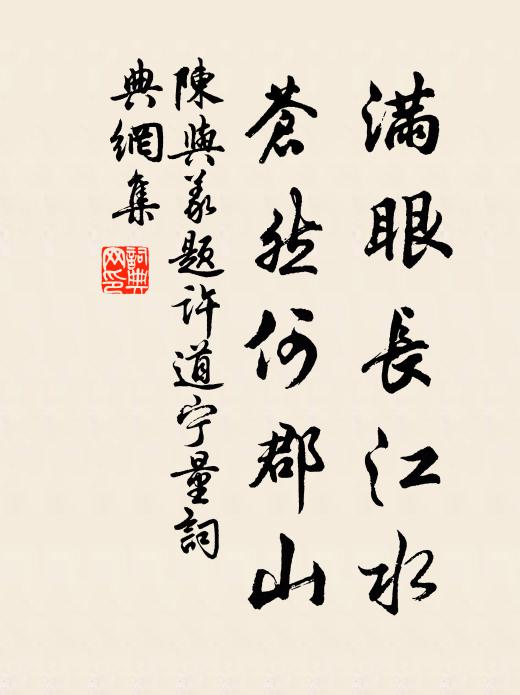 滿眼長江水
蒼然何郡山
陳與義題許道宁量詞
典網集
詞典
网印